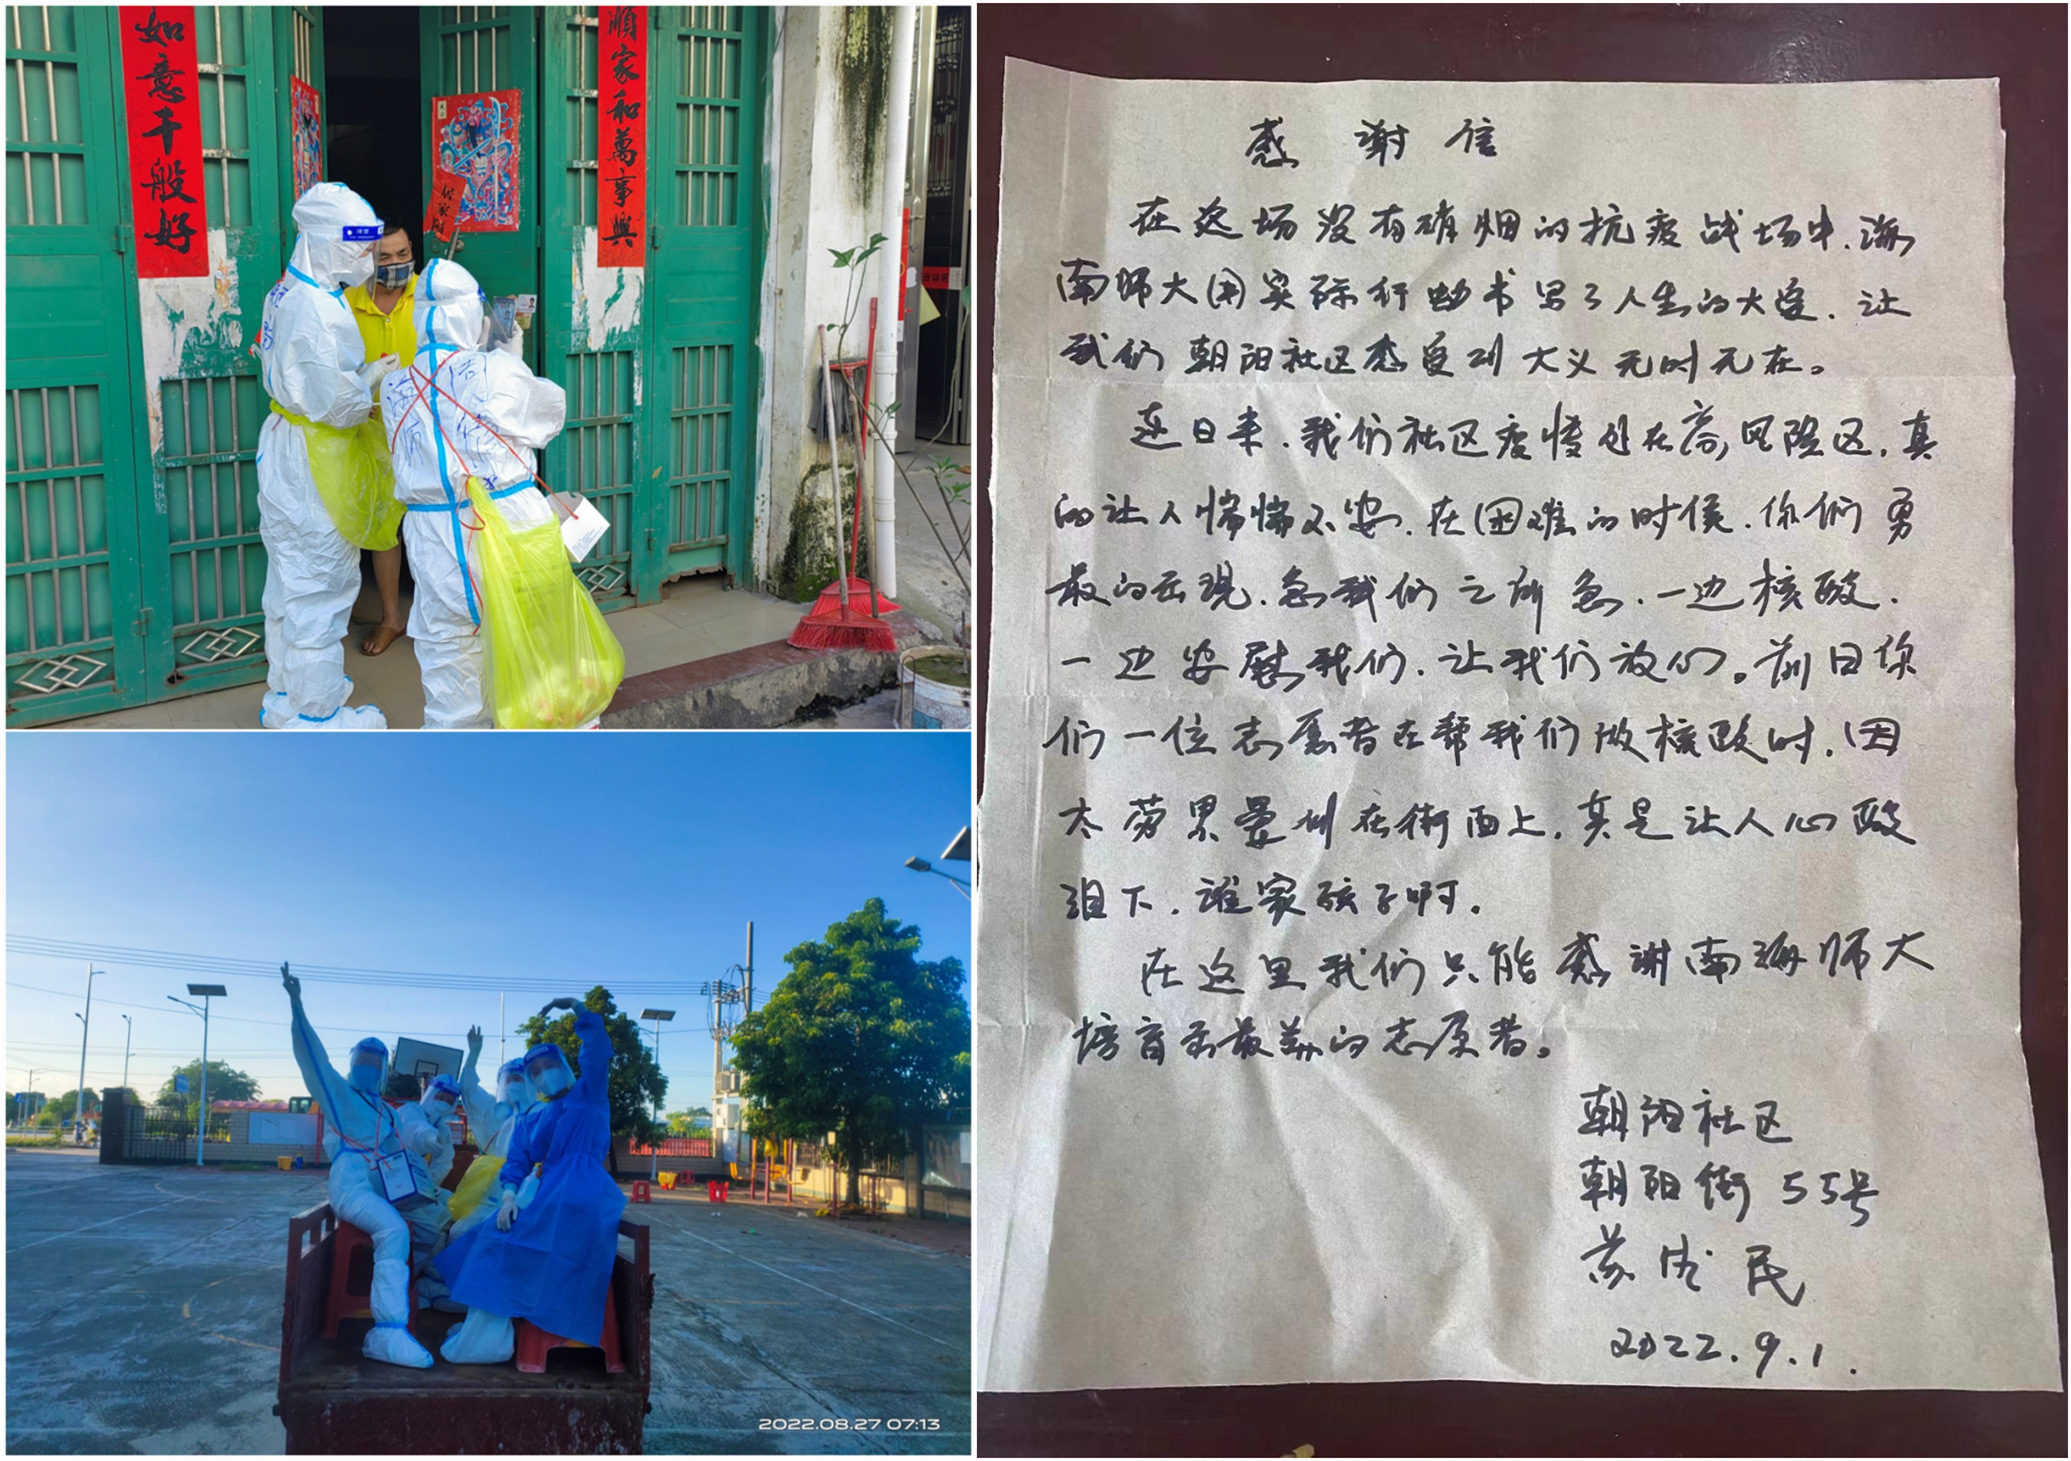 如意千般好
順家和萬事興
2022.08.27 07:13
感谢信
在这场没有硝烟的抗疫战场中,海
南师大用实际行动书写了人生的大爱,让
我们朝阳社区感受到大义无时无在。
连日来,我们社区疫情处在高风险区,真
的让人惴惴不安,在困难的时候,你们勇
敢的出现,急我们之所急,一边核酸,
一边安慰我们,让我们放心。前日你
们一位志愿者在帮我们做核酸时,因
太劳累晕倒在街面上,真是让人心酸
泪下,谁家孩子啊。
在这里我们只能感谢南海师大
培育出最美的志愿者。
朝阳社区
朝阳街55号
民
2022.9.1.